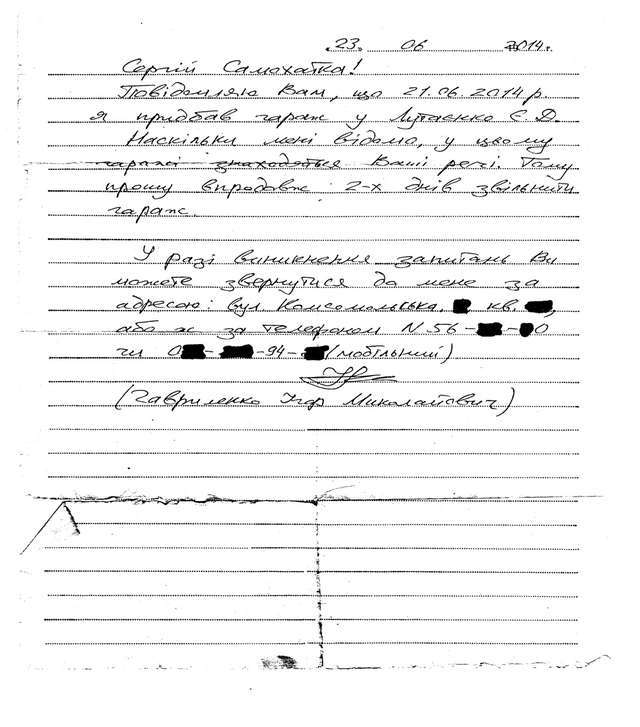 23. 06 2014.
Сергій Самохатка!
Повідомляю Вам, що 21.06.2014 р.
я придбав гараж у Лутаєнко Є.Д.
Наскільки мені відомо, у цьому
гаражі знаходяться Ваші речі. Тому
прошу впродовж 2-х днів звільнити
гараж.
У разі виникнення запитань Ви
можете звернутися до мене за
адресою: вул Комсомольська, кв. ,
або ж за телефоном N 56- - 0
чи 0 - -94- (мобільний)
(Гавриленко Ігор Миколайович)